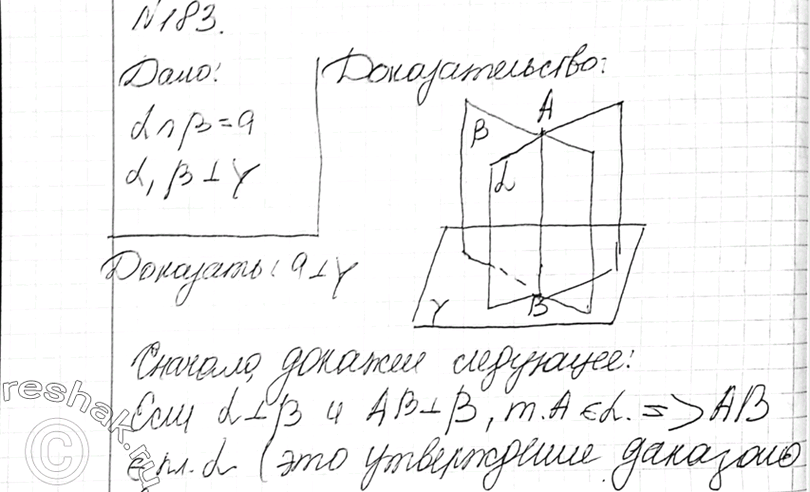 N183.
Дано:
α∩β=a
α, β⊥γ
Доказать: a⊥γ
Доказательство:
A
β
α
γ
B
Сначала докажем следующее:
Если α⊥β и AB⊥β, т.A∈α. => AB
∈ пл. α (это утверждение даказано
reshak.ru
©